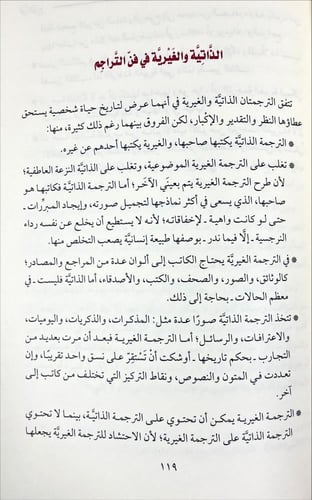 الذَّاتِيَّة والغَيْرِيَّة في فنّ التَّراجِم
تتفق الترجمتان الذاتيَّة والغيرية في أنهما عرض لتاريخ حياة شخصية يستحق
عطاؤها النظر والتقدير والإكبار، لكن الفروق بينهما رغم ذلك كثيرة، منها:
• الترجمة الذاتيَّة يكتبها صاحبها، والغيرية يكتبها أحدهم عن غيره.
• تغلب على الترجمة الغيرية الموضوعية، وتغلب على الذاتيَّة النزعة العاطفية؛
لأن طرح الترجمة الغيرية يتم بعينَي الآخَر؛ أما الترجمة الذاتيَّة فكاتبها هو
صاحبها، الذي يسعى في أكثر نماذجها لتجميل صورته، وإيجاد المبرِّرات ـ
حتى لو كانت واهية ـ لإخفاقاته؛ لأنه لا يستطيع أن يخلع عن نفسه رداء
النرجسية ـ إلَّا فيما ندر ـ بوصفها طبيعة إنسانية يصعب التخلص منها.
• في الترجمة الغيرية يحتاج الكاتب إلى ألوان عدة من المراجع والمصادر؛
كالوثائق، والصور، والصحف، والكتب، والأصدقاء، أما الذاتيَّة فليست ـ في
معظم الحالات ـ بحاجة إلى ذلك.
• تتخذ الترجمة الذاتيَّة صورًا عدة مثل: المذكرات، والذكريات، واليوميات،
والاعترافات، والرسائل؛ أما الترجمة الغيرية فبعد أن مرت بعديد من
التجارب ـ بحكم تاريخها ـ أوشكت أنْ تَسْتَقِرَّ على نسق واحد تقريبًا، وإن
تعددت في المتون والنصوص، ونقاط التركيز التي تختلف من كاتب إلى
آخر.
• الترجمة الغيرية يمكن أن تحتوي على الترجمة الذاتيَّة، بينما لا تحتوي
الترجمة الذاتيَّة على الترجمة الغيرية؛ لأن الاحتشاد للترجمة الغيرية يجعلها
١١٩